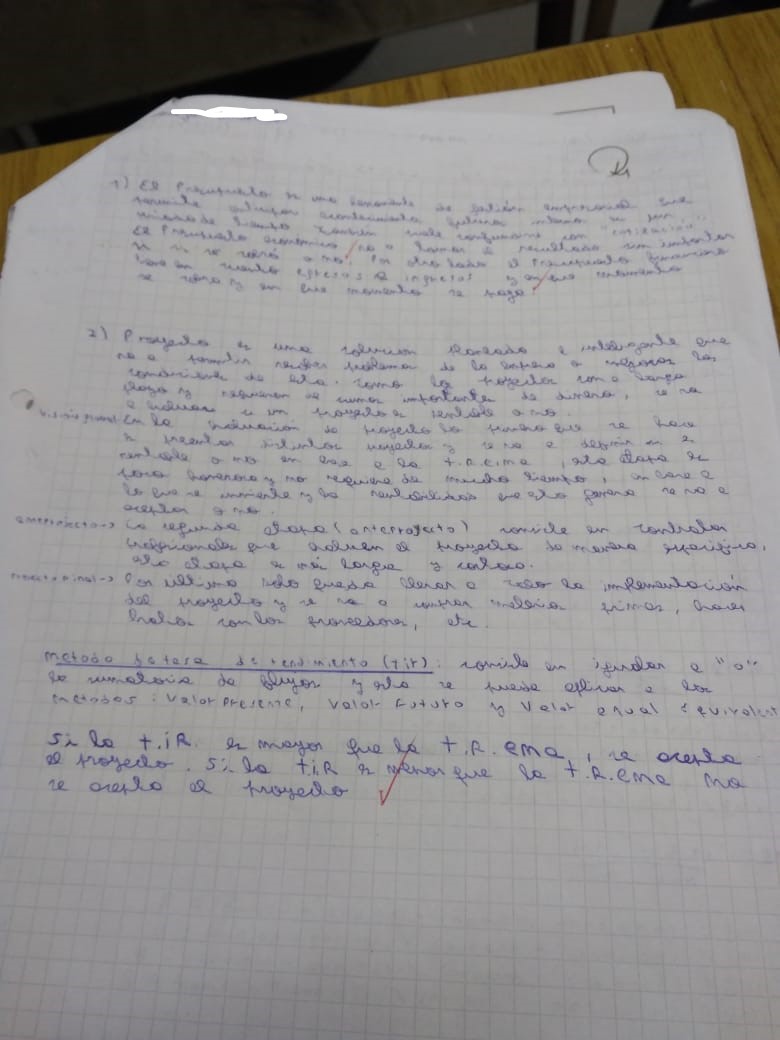 1) El Presupuesto es una herramienta de gestión empresarial que
permite anticipar acontecimientos
unidad de tiempo también suele confundirse con "cotización".
El Presupuesto económico va a tomar el resultado sin importar
si se cobró o no. Por otro lado el Presupuesto financiero
tiene en cuenta egresos e ingresos y en que momento
se cobra y en que momento se paga.
2) Proyecto es una solución planeada e inteligente que
va a permitir resolver problema de la empresa o mejorar las
condiciones de ella. como los proyectos son a largo
plazo y requieren de sumas importante de dinero, se va
a evaluar si un proyecto es rentable o no.
En la evaluación de proyecto lo primero que se hace
es presentar distintos proyectos y se va a definir si es
rentable o no en base a la t.R.ema, esta etapa es
poco y no requiere de mucho tiempo, en base a
lo que se invierte y la rentabilidad que esto genera se va a
aceptar o no.
anteproyecto → La segunda etapa (anteproyecto) consiste en contratar
profesionales que evaluen el proyecto de manera
esta etapa es más larga y costosa.
Proyecto final → Por último solo queda llevar a cabo la implementación
del proyecto y se va a comprar materias primas, hacer
tratos con los proveedores, etc.
metodo de tasa de rendimiento (tir): consiste en igualar a "0"
la sumatoria de flujos y esto se puede aplicar a los
metodos: Valor Presente, Valor Futuro y Valor anual equivalent
Si la t.iR. es mayor que la t.R.ema, se acepta
el proyecto. Si la t.iR es menor que la t.R.ema no
se acepta el proyecto